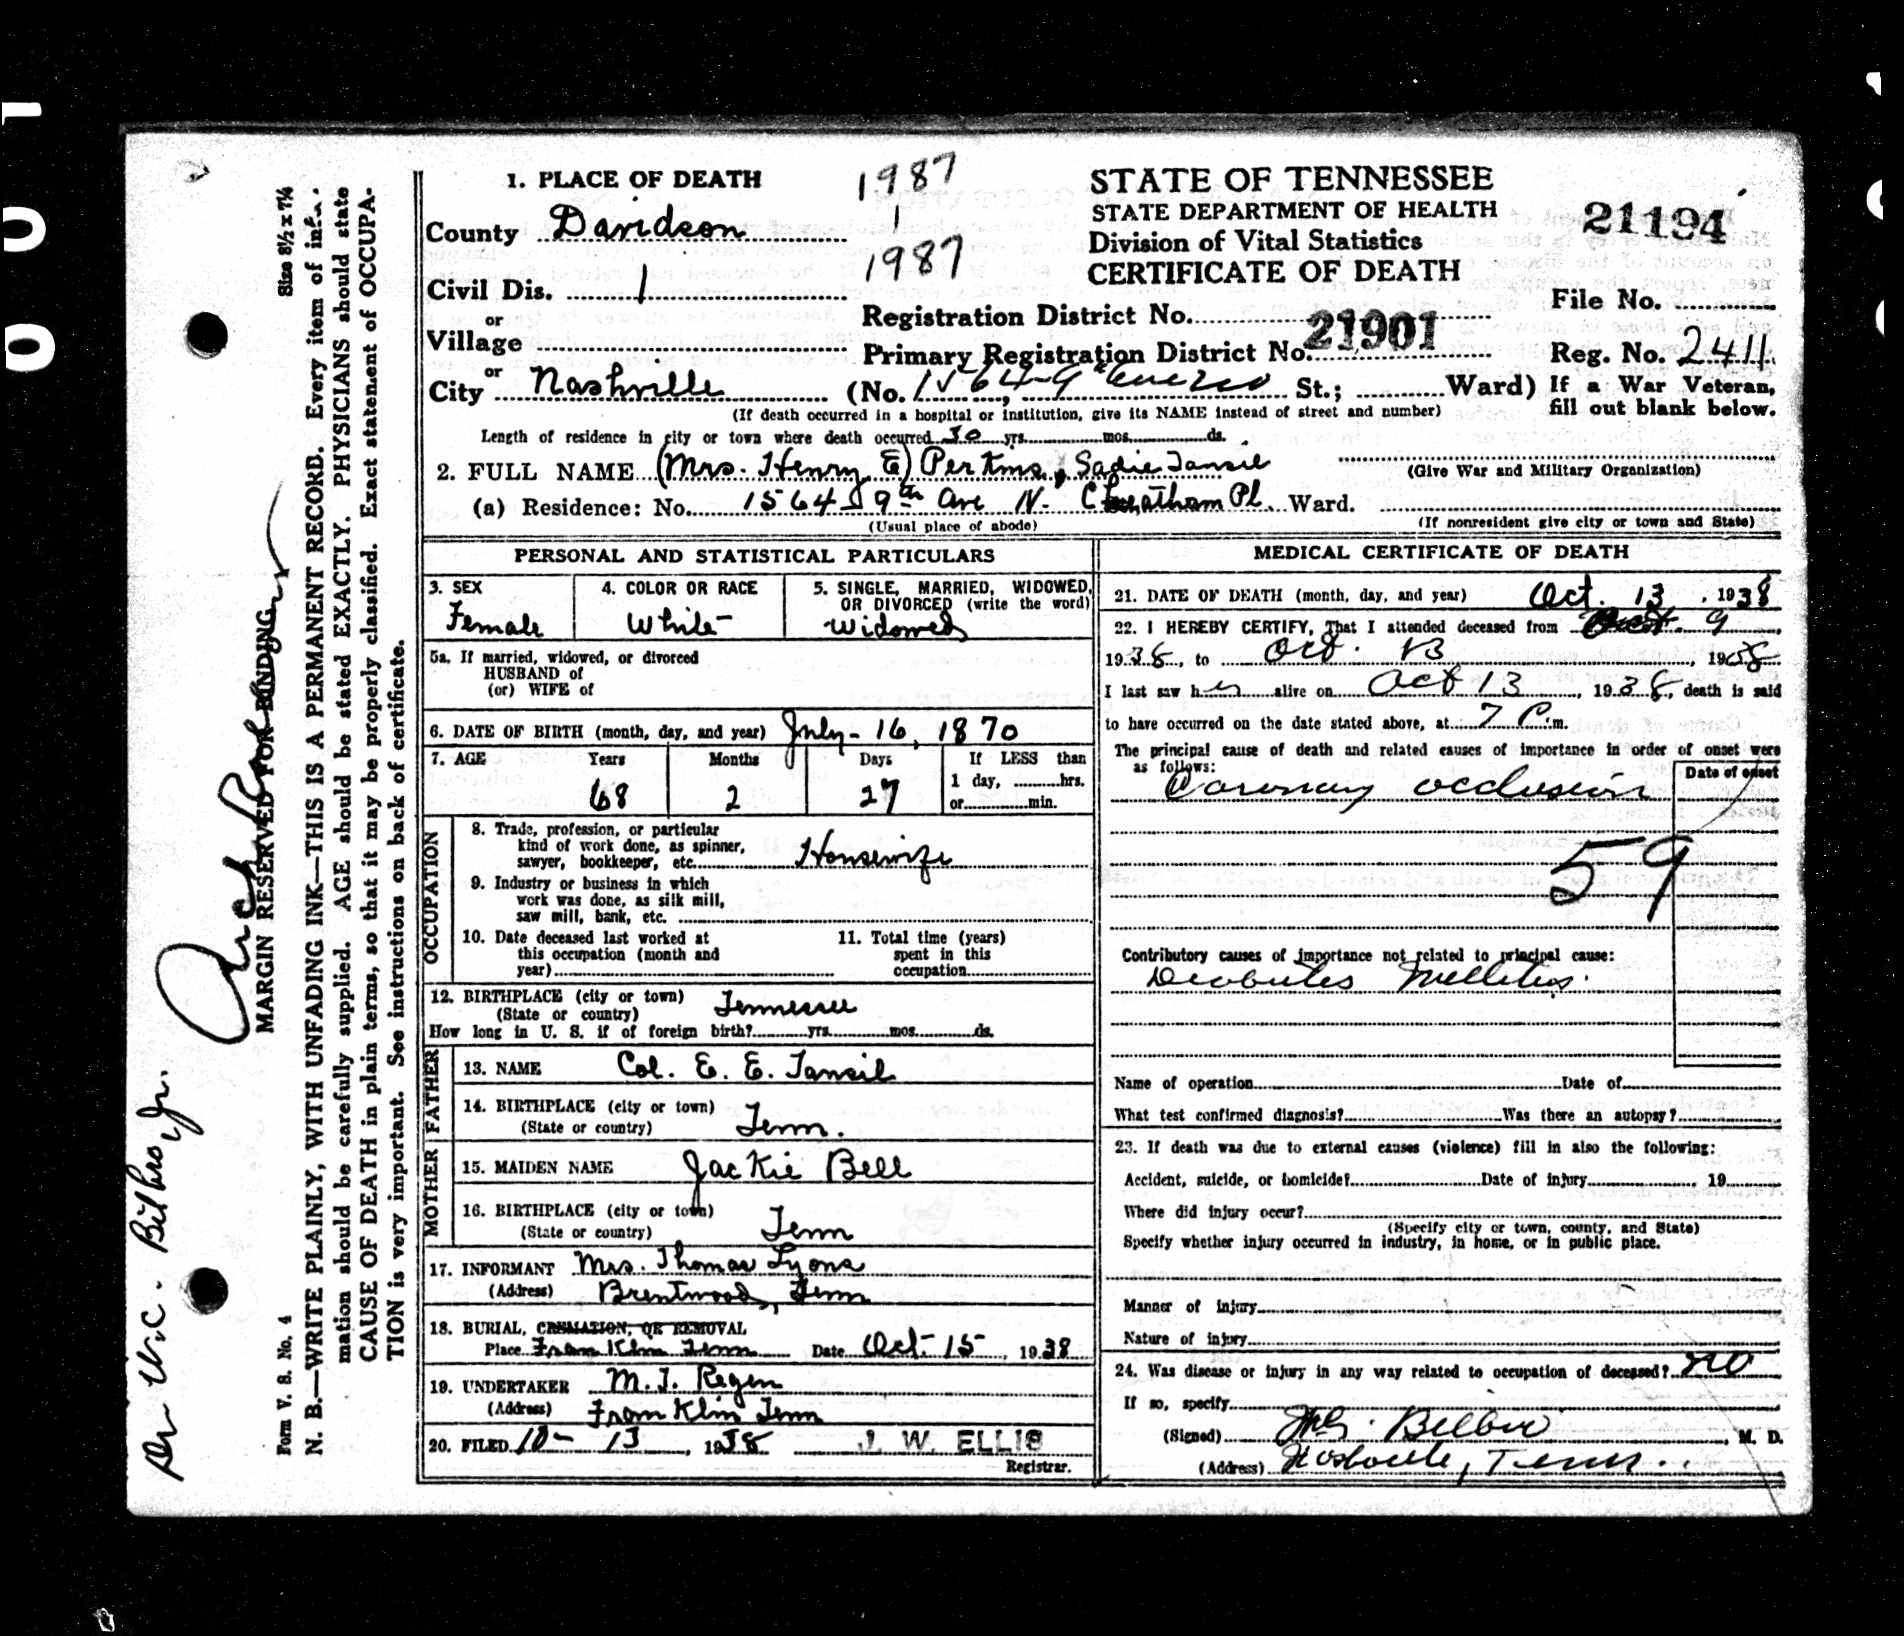 1. PLACE OF DEATH
County Davidson
Civil Dis. 1
or
Village
or
City Nashville (No. St.; Ward)
(If death occurred in a hospital or institution, give its NAME instead of street and number)
1987
1
1987
STATE OF TENNESSEE
STATE DEPARTMENT OF HEALTH
Division of Vital Statistics
CERTIFICATE OF DEATH
21194
Registration District No.
Primary Registration District No. 21901
File No.
Reg. No. 2411
If a War Veteran,
fill out blank below.
Length of residence in city or town where death occurred 30 yrs. mos. ds.
2. FULL NAME (Mrs. Henry E) Perkins, Sadie Tansil
(Give War and Military Organization)
(a) Residence: No. 1564 9th Ave N. Cheatham Pl. Ward.
(Usual place of abode)
(If nonresident give city or town and State)
PERSONAL AND STATISTICAL PARTICULARS
3. SEX
Female
4. COLOR OR RACE
White
5. SINGLE, MARRIED, WIDOWED,
OR DIVORCED (write the word)
Widowed
5a. If married, widowed, or divorced
HUSBAND of
(or) WIFE of
6. DATE OF BIRTH (month, day, and year) July - 16, 1870
7. AGE Years Months Days If LESS than
68 2 27 1 day, hrs.
or min.
OCCUPATION
8. Trade, profession, or particular
kind of work done, as spinner,
sawyer, bookkeeper, etc. Housewife
9. Industry or business in which
work was done, as silk mill,
saw mill, bank, etc.
10. Date deceased last worked at
this occupation (month and
year)
11. Total time (years)
spent in this
occupation
12. BIRTHPLACE (city or town) Tennessee
(State or country)
How long in U. S. if of foreign birth? yrs. mos. ds.
FATHER
13. NAME Col. E. E. Tansil
14. BIRTHPLACE (city or town) Tenn.
(State or country)
MOTHER
15. MAIDEN NAME Jackie Bell
16. BIRTHPLACE (city or town) Tenn
(State or country)
17. INFORMANT Mrs. Thomas Lyons
(Address) Brentwood, Tenn
18. BURIAL, CREMATION, OR REMOVAL
Place Franklin Tenn Date Oct. 15, 1938
19. UNDERTAKER M. T. Regen
(Address) Franklin Tenn
20. FILED 10 - 13, 1938 J. W. ELLIS
Registrar.
MEDICAL CERTIFICATE OF DEATH
21. DATE OF DEATH (month, day, and year) Oct. 13, 1938
22. I HEREBY CERTIFY, That I attended deceased from Oct. 9,
1938, to Oct. 13, 1938
I last saw her alive on Oct 13, 1938, death is said
to have occurred on the date stated above, at 7 P.m.
The principal cause of death and related causes of importance in order of onset were
as follows:
Date of onset
Coronary occlusion
59
Contributory causes of importance not related to principal cause:
Diabetes Mellitus.
Name of operation Date of
What test confirmed diagnosis? Was there an autopsy?
23. If death was due to external causes (violence) fill in also the following:
Accident, suicide, or homicide? Date of injury, 19
Where did injury occur?
(Specify city or town, county, and State)
Specify whether injury occurred in industry, in home, or in public place.
Manner of injury
Nature of injury
24. Was disease or injury in any way related to occupation of deceased? no
If so, specify
(Signed) M. D.
(Address) Nashville, Tenn.
Dr W.C. Bilbro, Jr.
MARGIN RESERVED FOR BINDING
Form V. S. No. 4 Size 8½ x 7¼
N. B.—WRITE PLAINLY, WITH UNFADING INK—THIS IS A PERMANENT RECORD. Every item of infor-
mation should be carefully supplied. AGE should be stated EXACTLY. PHYSICIANS should state
CAUSE OF DEATH in plain terms, so that it may be properly classified. Exact statement of OCCUPA-
TION is very important. See instructions on back of certificate.